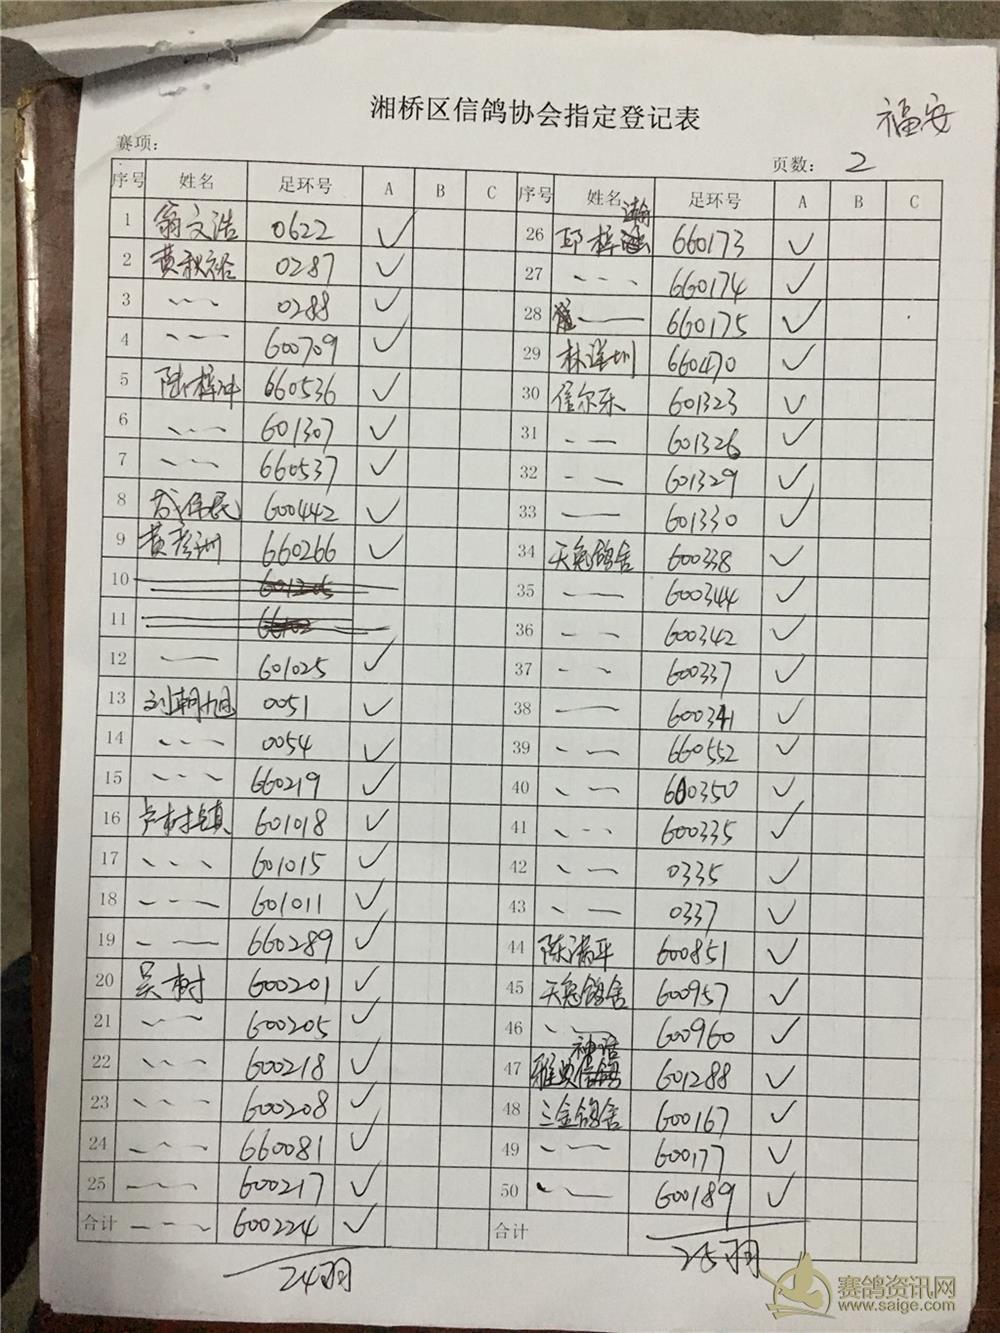 湘桥区信鸽协会指定登记表
福安
赛项：
页数： 2
序号 姓名 足环号 A B C 序号 姓名 足环号 A B C
1 翁文浩 0622 ✓ 26 邱梓瀚 660173 ✓
2 黄秋裕 0287 ✓ 27 660174 ✓
3 0288 ✓ 28 660175 ✓
4 600709 ✓ 29 林泽圳 660470 ✓
5 陈梓冲 660536 ✓ 30 信尔乐 601323 ✓
6 601307 ✓ 31 601326 ✓
7 660537 ✓ 32 601329 ✓
8 600442 ✓ 33 601330 ✓
9 黄彦洲 660266 ✓ 34 天兔鸽舍 600338 ✓
10 35 600344 ✓
11 36 600342 ✓
12 601025 ✓ 37 600337 ✓
13 刘朝旭 0051 ✓ 38 600341 ✓
14 0054 ✓ 39 660552 ✓
15 660219 ✓ 40 600350 ✓
16 卢树镇 601018 ✓ 41 600335 ✓
17 601015 ✓ 42 0335 ✓
18 601011 ✓ 43 0337 ✓
19 660289 ✓ 44 陈满平 600851 ✓
20 吴树 600201 ✓ 45 天兔鸽舍 600957 ✓
21 600205 ✓ 46 600960 ✓
22 600218 ✓ 47 雅典神话 601288 ✓
23 600208 ✓ 48 三金鸽舍 600167 ✓
24 660081 ✓ 49 600177 ✓
25 600217 ✓ 50 600189 ✓
合计 600224 ✓ 合计
24羽 25羽
赛鸽资讯网
www.saige.com